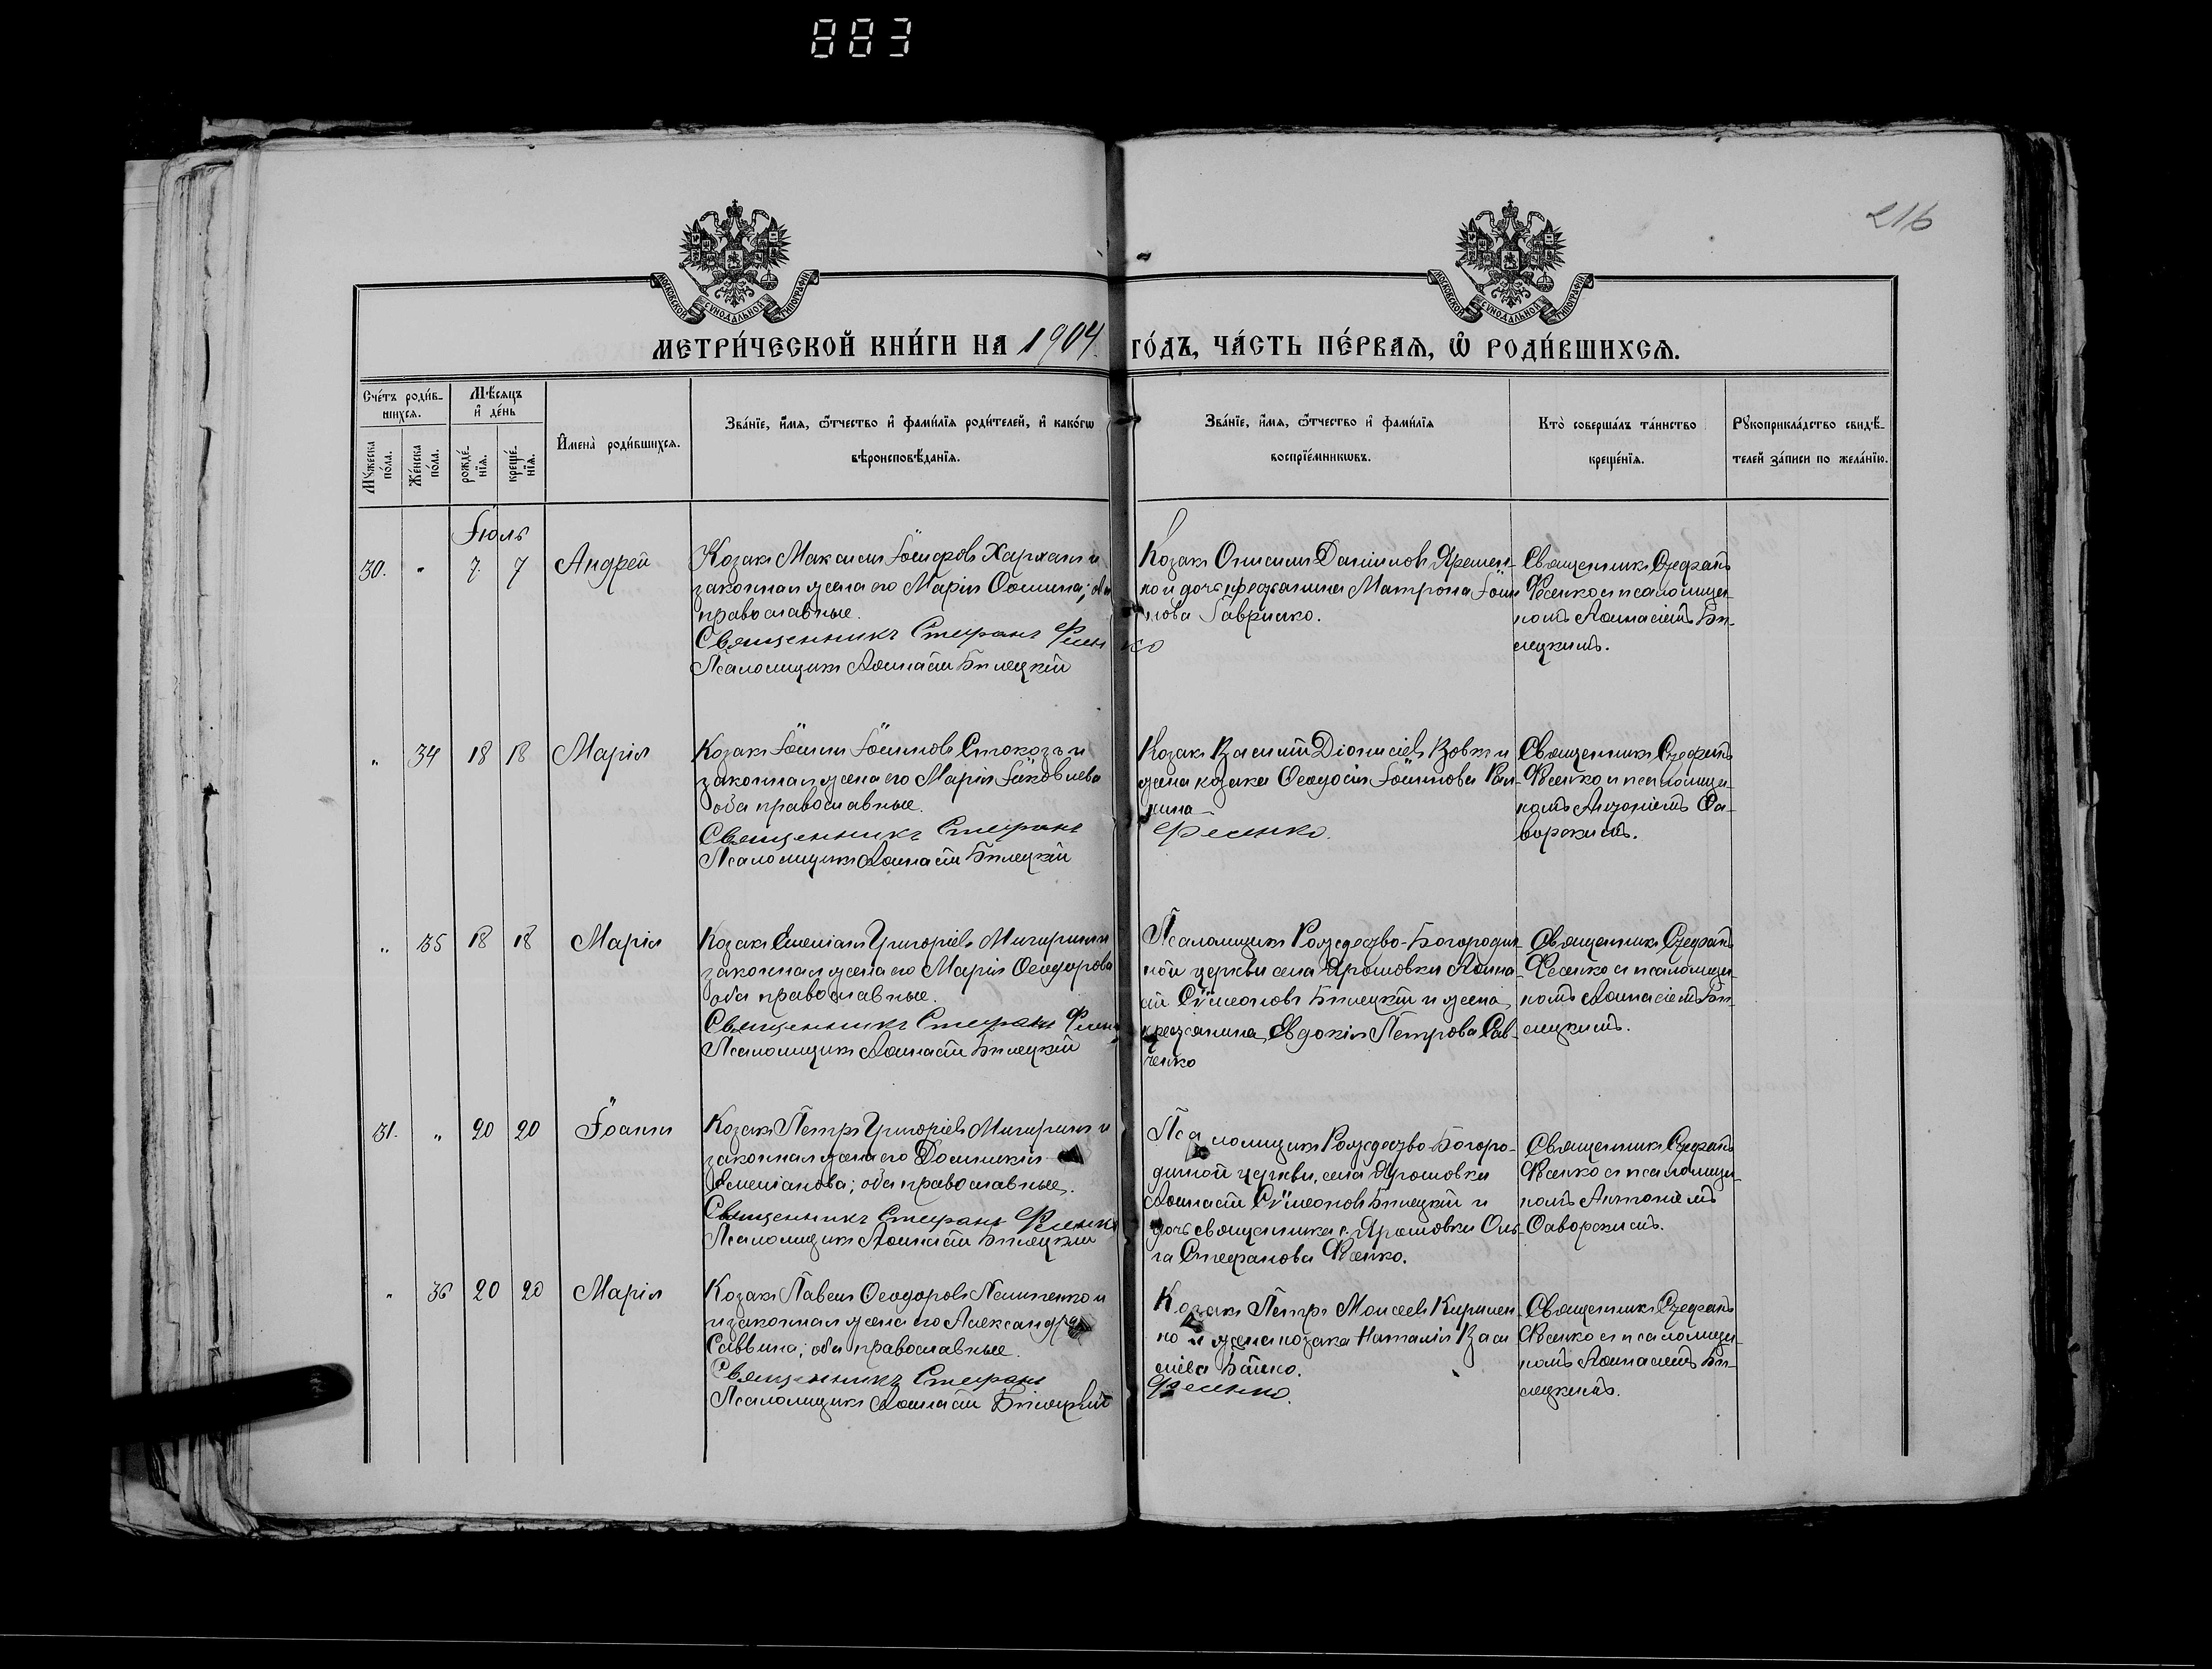 883
216
МОСКОВСКОЙ СѴНОДАЛЬНОЙ ТИПОГРАФІИ
МОСКОВСКОЙ СѴНОДАЛЬНОЙ ТИПОГРАФІИ
МЕТРИ́ЧЕСКОЙ КНИ́ГИ НА 1904 ГО́ДЪ, ЧА́СТЬ ПЕ́РВАЯ, Ѡ҆ РОДИ́ВШИХСЯ.
Сче́тъ роди́в-
шихся.
Мѣ́сяцъ
и҆ де́нь
Мꙋ́жеска
по́ла.
Же́нска
по́ла.
рожде́-
нїя.
креще́-
нїя.
И҆мена̀ роди́вшихся.
Зва́нїе, и҆́мя, ѻ҆́тчество и҆ фами́лїя роди́телей, и҆ како́гѡ
вѣроисповѣ́данїя.
Зва́нїе, и҆́мя, ѻ҆́тчество и҆ фами́лїя
воспрїе́мникѡвъ.
Кто̀ соверша́лъ та́инство
креще́нїя.
Рꙋкоприкла́дство свидѣ́-
телей за́писи по жела́нїю.
Іюль
30. " 7 7 Андрей
Козакъ Максимъ Іосифовъ и
законная жена его Марія Ѳомина; оба
православные.
Священникъ Стефанъ Фесенко
Псаломщикъ Аѳанасій Билецкій
Козакъ Онисимъ Даниловъ Яремен-
ко и дочь крестьянина Матрона
Гавриленко.
Священникъ Стефанъ
Фесенко и псаломщи-
комъ Аѳанасіемъ Би-
лецкимъ.
" 34 18 18 Марія
Козакъ Іоаннъ Іоанновъ Стокозъ и
законная жена его Марія Іаковлева
оба православные.
Священникъ Стефанъ Фесенко.
Псаломщикъ Аѳанасій Билецкій
Козакъ Василій Діонисіевъ Вовкъ и
жена козака Ѳеодосія Іоаннова
Священникъ Стефанъ
Фесенко и псаломщи-
комъ Антоніемъ Са-
ворскимъ.
" 35 18 18 Марія
Козакъ Емеліанъ Григоріевъ и
законная жена его Марія Ѳеодорова
оба православные.
Священникъ Стефанъ Фесенко
Псаломщикъ Аѳанасій Билецкій
Псаломщикъ Рождество-Богородич-
ной церкви села Ярошовки Аѳана-
сій Сѵмеоновъ Билецкій и жена
крестьянина Евдокія Петрова Сав-
ченко
Священникъ Стефанъ
Фесенко и псаломщи-
комъ Аѳанасіемъ Би-
лецкимъ.
31. " 20 20 Іоаннъ
Козакъ Петръ Григоріевъ и
законная жена его Домникія
Емеліанова; оба православные.
Священникъ Стефанъ Фесенко
Псаломщикъ Аѳанасій Билецкій
Псаломщикъ Рождество-Богоро-
дичной церкви, села Ярошовки
Аѳанасій Сѵмеоновъ Билецкій и
дочь священника с. Ярошовки Оль-
га Стефанова Фесенко.
Священникъ Стефанъ
Фесенко и псаломщи-
комъ Антоніемъ
Саворскимъ.
" 36 20 20 Марія
Козакъ Павелъ Ѳеодоровъ и
и законная жена его Александра
Саввина; оба православные.
Священникъ Стефанъ Фесенко.
Псаломщикъ Аѳанасій Билецкій
Козакъ Петръ Моисеевъ Кирилен-
ко и жена козака Наталія Васи
ліева Бойко.
Священникъ Стефанъ
Фесенко и псаломщи-
комъ Аѳанасіемъ Би-
лецкимъ.